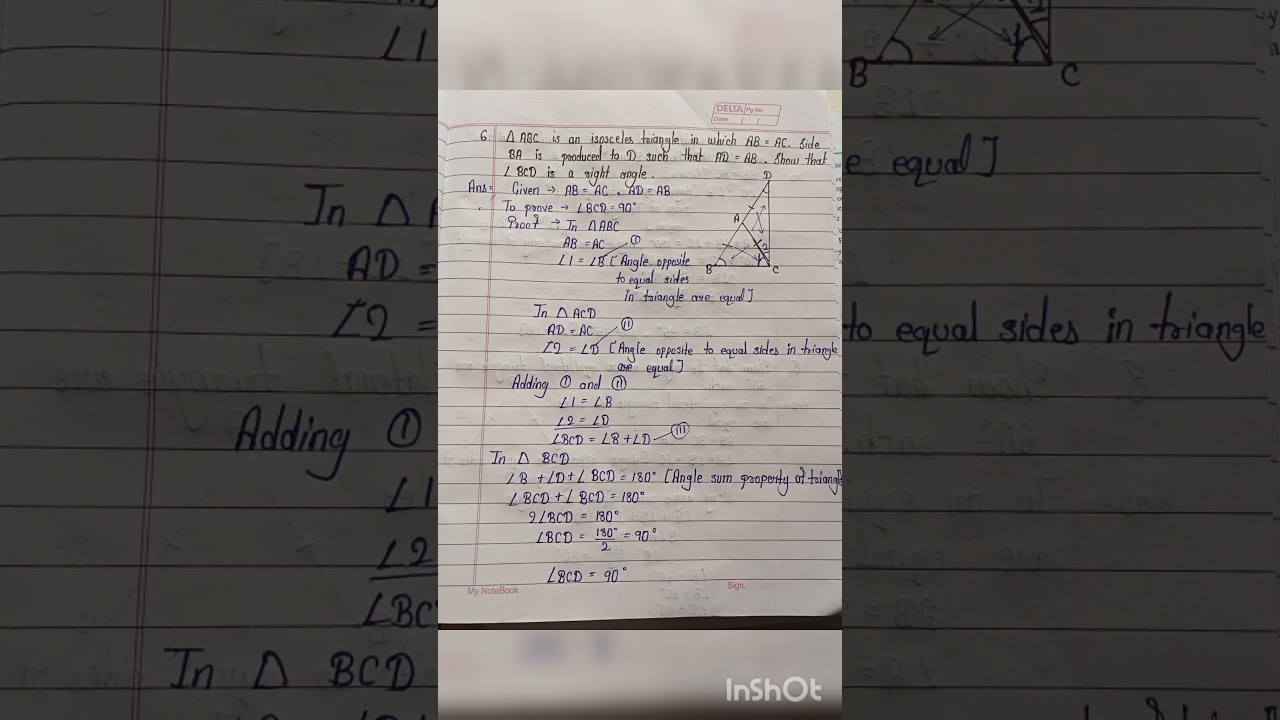 DELTA Pg No.
Date
6. Δ ABC is an isosceles triangle in which AB = AC. Side
BA is produced to D such that AD = AB. Show that
∠BCD is a right angle.
Ans:- Given → AB = AC, AD = AB
To prove → ∠BCD = 90°
Proof → In ΔABC
AB = AC
∠1 = ∠B —① [Angle opposite
to equal sides
in triangle are equal]
D
A
2
1
B C
In Δ ACD
AD = AC
∠2 = ∠D —② [Angle opposite to equal sides in triangle
are equal]
Adding ① and ②
∠1 = ∠B
∠2 = ∠D
∠BCD = ∠B + ∠D —③
In Δ BCD
∠B + ∠D + ∠BCD = 180° [Angle sum property of triangle
∠BCD + ∠BCD = 180°
2∠BCD = 180°
∠BCD = 180°/2 = 90°
∠BCD = 90°
My NoteBook Sign.
InShOt
∠1
In Δ A
AD =
∠2 =
Adding ①
∠1
∠2
∠BC
In Δ BCD
B C
e equal]
to equal sides in triangle